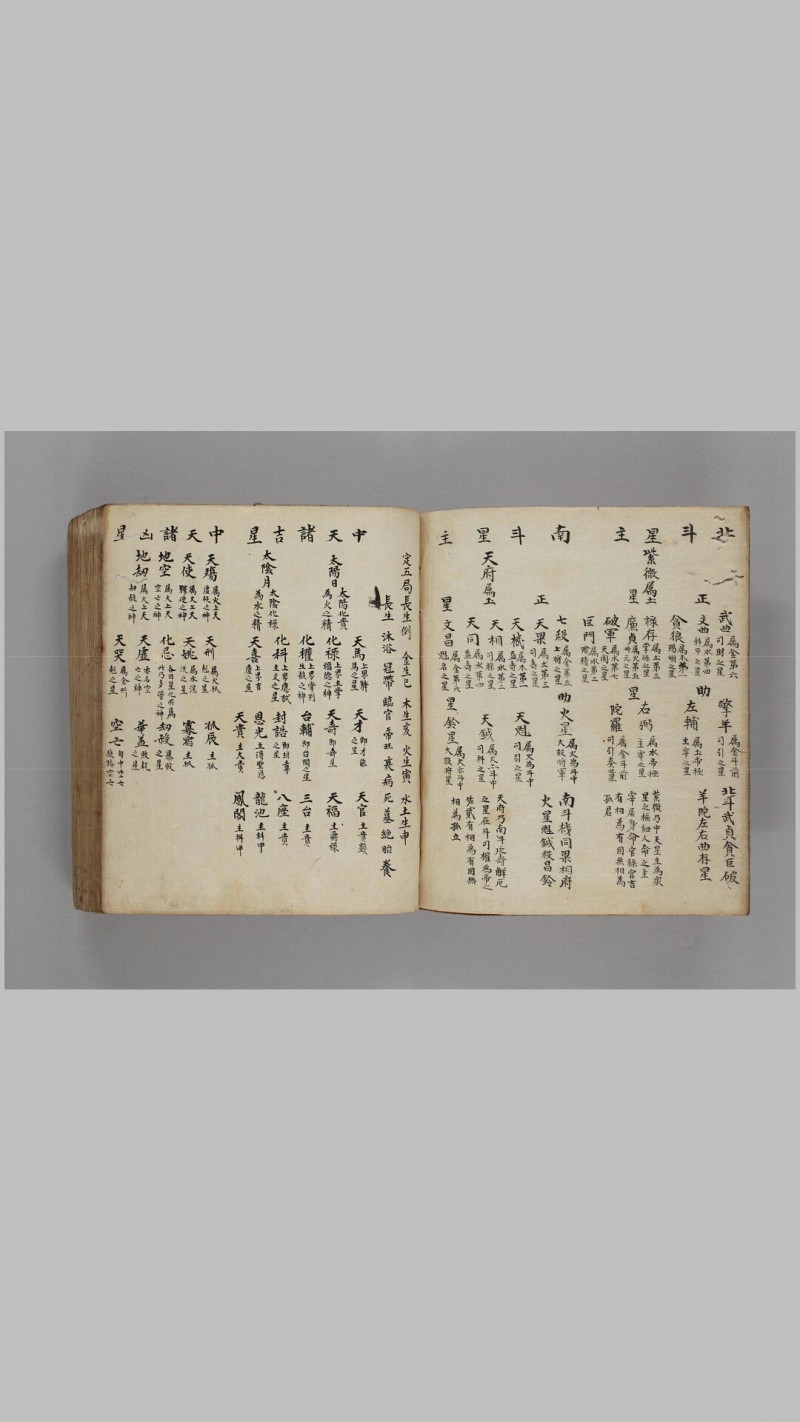 北斗星主
武曲 属金第六 司財之星
擎羊 属金斗前 司引之星
北斗武貞貪巨破
正
文曲 属水第四
助
羊陀左右曲存星
貪狼
左輔 属土帝極 主宰之星
星
紫微属土
祿存 属土第三
右弼 属水帝極 主宰之星
紫微乃中天星主為眾
星之樞紐人命之主
宰居身命官祿宮吉
有相為有用無相為
孤君
廉貞 属火第五
星
陀羅 属金斗前
破軍 属水第七
巨門 属水第二
南斗星主
七殺 属金第五 上將之星
火星 属火為斗中 大殺將軍
南斗機同梁相府
正
天梁 属土第三 司壽之星
助
火星魁鉞殺昌鈴
天機 属木第一 益壽之星
天魁 属火為斗中 司引之星
天府属土
天相 属水第二
天鉞 属火
天府乃南斗
之星在斗司權為帝之
佐貳有相為有用無
相為孤立
天同 属水第四
星
文昌 属金第六 魁名之星
星
鈴星 大殺將星
定五局長生例 金生巳 木生亥 火生寅 水土生申
長生 沐浴 冠帶 臨官 帝旺 衰 病 死 墓 絕 胎 養
中天諸吉星
太陽日 太陽化貴 為火之精
天馬
天才 即才能之星
天官 主貴顯
化祿 上界主掌 福德之神
天壽 即壽星
天福 主壽祿
化權 上界掌判 生殺之神
台輔 即台閣之星
三台 主貴
太陰月 太陰化祿 為水之精
化科 上界應試 主文之星
封誥 即封章之星
八座 主貴
天喜
恩光
龍池 主科甲
天貴 主大貴
鳳閣 主科甲
中天諸凶星
天殤 属火上天 虛耗之神
天刑 属火
孤辰 主孤
天使 属火上天 驛使之神
天姚 属水
寡宿 主孤
地空 属火上天 空亡之神
化忌
劫殺 之星
地劫 属火上天 劫殺之神
天虛
華蓋 之星
天哭 属金
空亡 旬中空亡 截路空亡